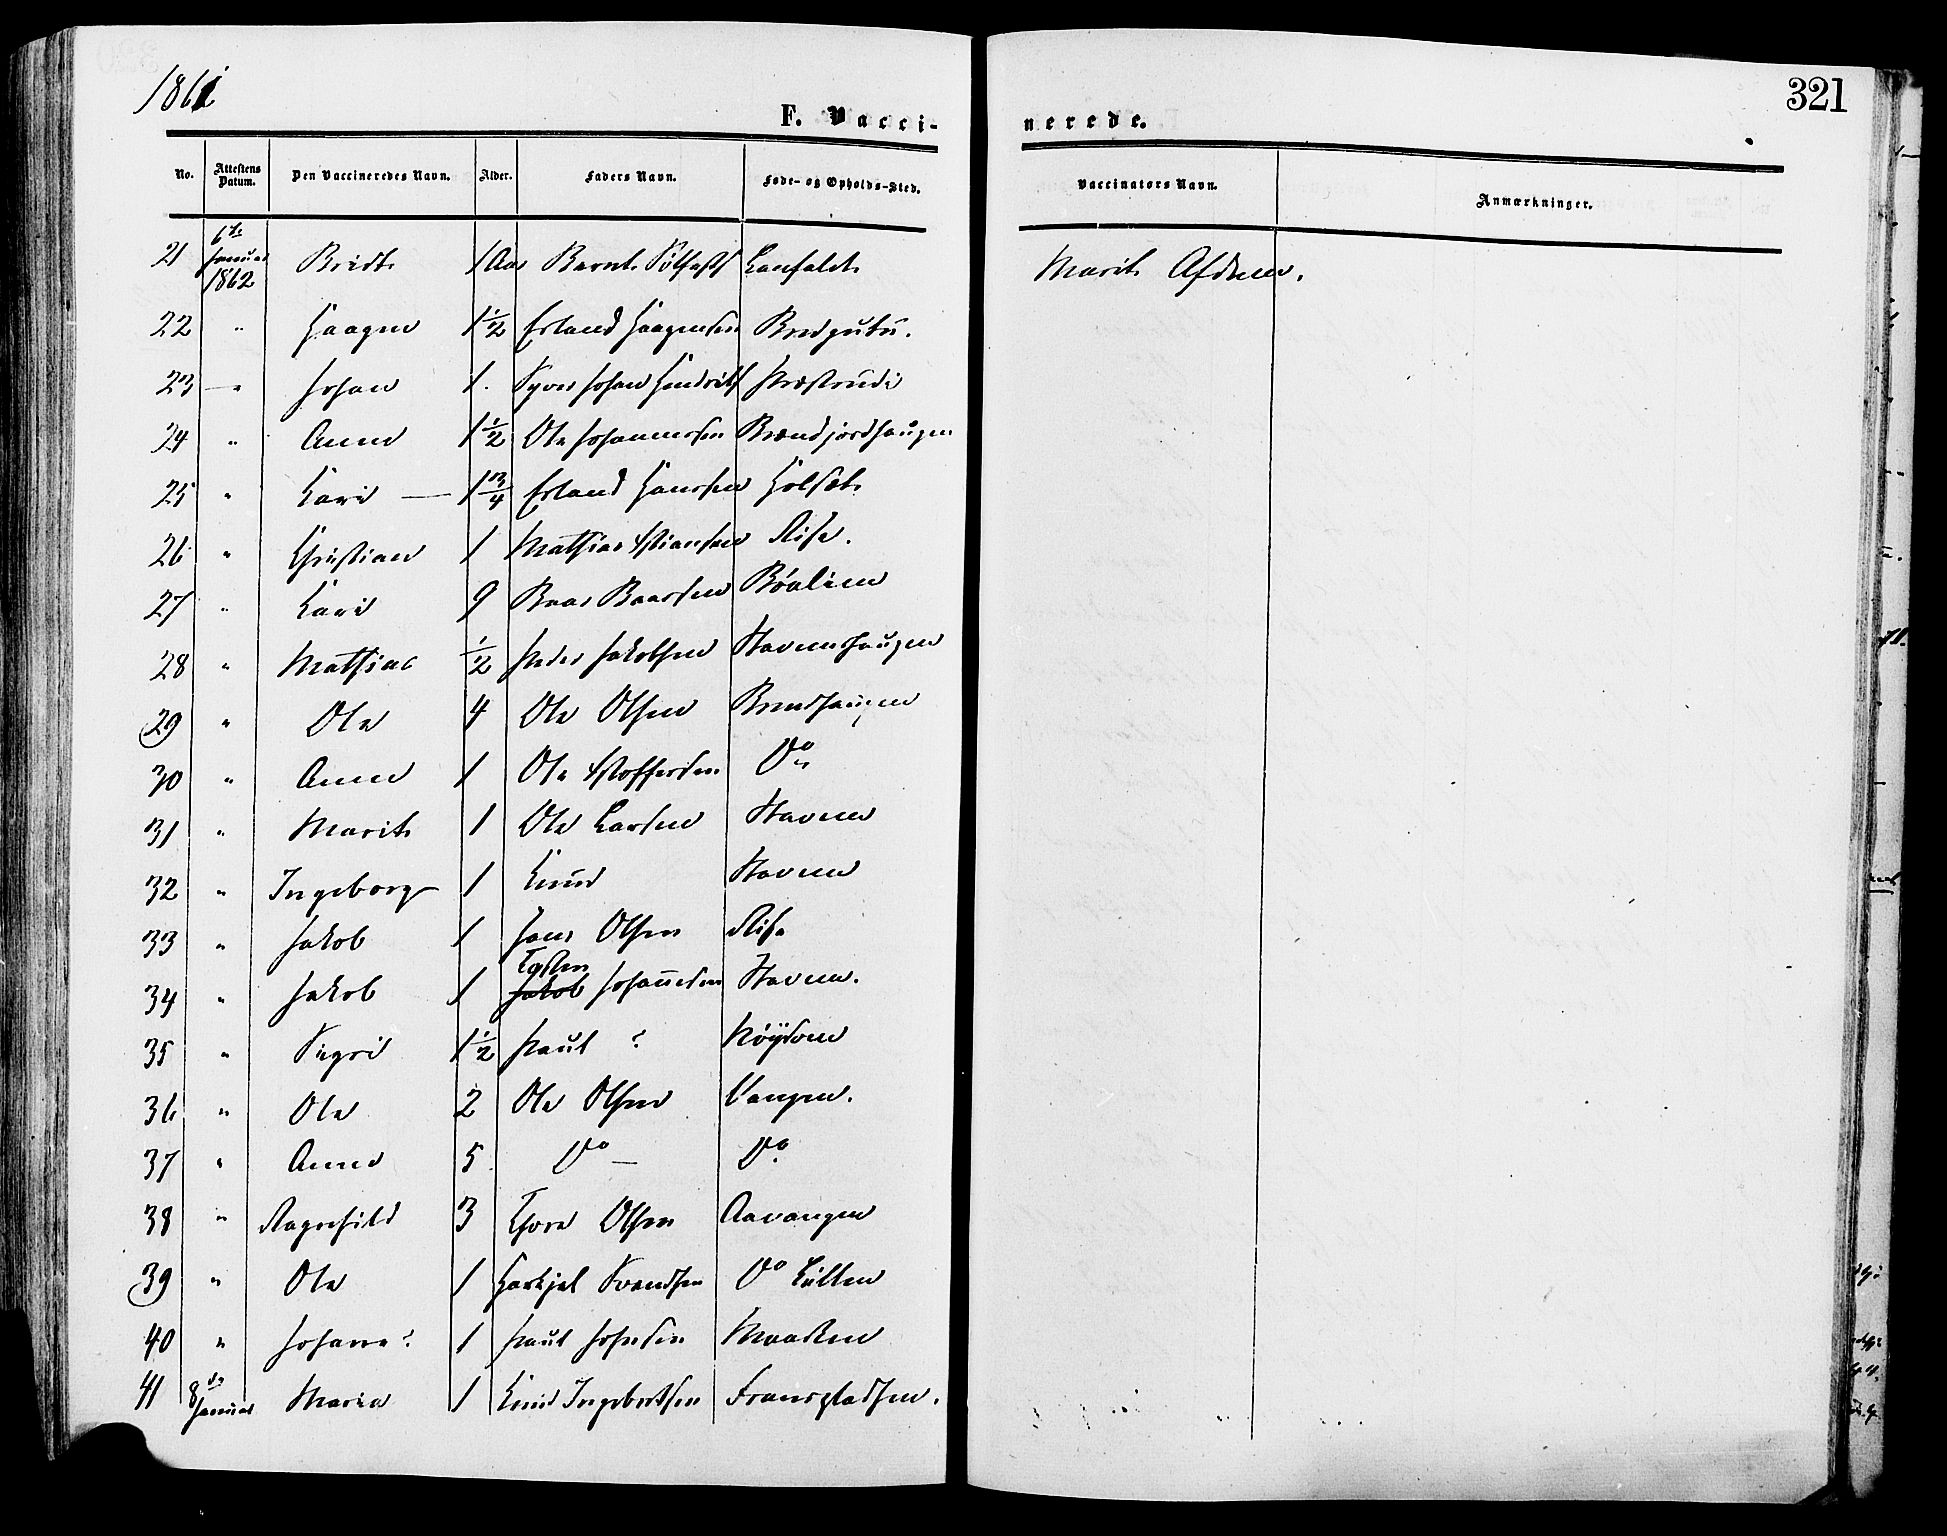 1862
321
F. Vacci-
nerede.
No. Attestens Datum. Den Vaccineredes Navn. Alder. Faders Navn. Føde- og Opholds-Sted. Vaccinators Navn. Anmærkninger.
21 6te Januar 1862 Bridt 1 Aar Bernt Marit
22 " Haagen 1½ Erland Haagensen
23 — " Johan 1.
24 " Anne 1½ Ole Johannessen Brændjordhaugen
25 " Kari — 1¾ Erland Hansen Holset
26 " Christian 1 Mathias Xstiansen Rise.
27 " Kari 9 Baar Baarsen Bøalien
28 " Mathias ½ Peder Jakobsen Stavenshaugen
29 " Ole 4 Ole Olsen Brendhaugen
30 " Anne 1 Ole Xstoffersen Do
31 " Marit 1 Ole Larsen Staven
32 " Ingeborg 1 Knud Staven
33 " Jakob 1 Jens Olsen Rise
34 " Jakob 1 Jakob Johannesen Staven.
35 " Sigri 1½ Paul ? Nøysom
36 " Ole 2 Ole Olsen Vangen.
37 " Anne 5 Do — Do
38 " Ragnhild 3 Thore Olsen Aavangen
39 " Ole 1 Svendsen Do
40 " Johanne? 1 Paul Johnsen
41 8de Januar Maria 1 Knud Ingebertsen